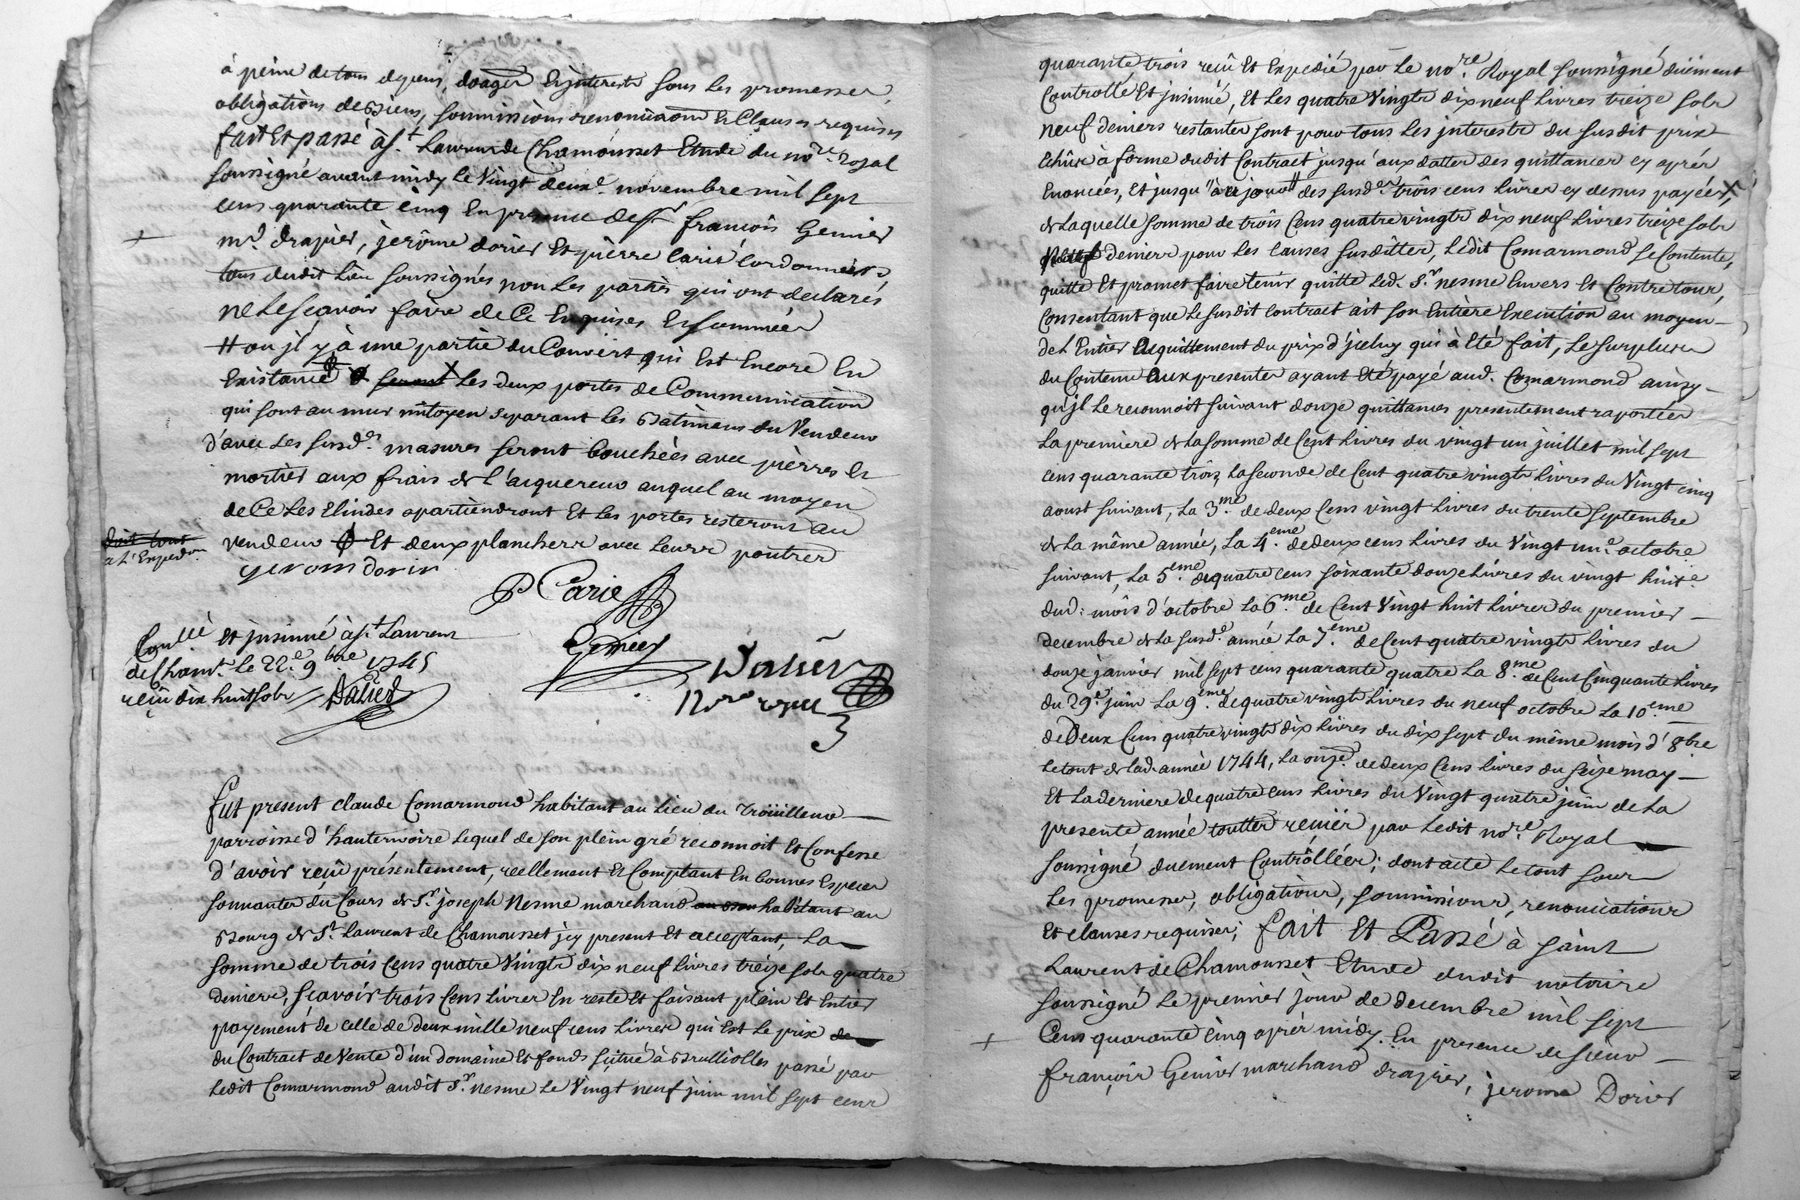 à peine de tous depens, domages Et jnterests sous les promesses,
obligations de biens, soumissions renonciations Et Clauses requises
fait Et passé à St. Laurent de Chamousset Etude du nore. royal
soussigné avant midy le Vingt deuxe. novembre mil sept
cens quarante cinq En presence de Srs françois Genier
md. drapier, jerôme dorier Et pierre Carié Cordonniers,
tous dudit Lieu soussignés non Les parties qui ont declarés
ne le sçavoir faire de Ce Enquises Et sommées
# ou jl y à une partie du Couvert qui Est Encore En
Existance les deux portes de Communication
qui sont au mur mitoyen separant les batimens du Vendeur
d'avec les susd.es masures seront bouchées avec pierres Et
mortier aux frais de l'acquereur auquel au moyen
de Ce Les apartiendront Et les portes resteront au
vendeur Et deux planchers avec leurs poutres
doit tout
a L'Expedon.
yerosm dorir
P Carie
Genier
Dalier
Nore royal
Conllé Et jnsinué à St Laurent
de Cham.t le 22e. 9bre 1745
reçû dix huit sols Dalier
fut present claude Comarmond habitant au Lieu du Trouilleur
parroisse d'hauterivoire Lequel de son plein gré reconnoit Et Confesse
d'avoir reçû présentement, reellement Et Comptant En bonnes Especes
sonnantes du Cours de Sr. joseph Nesme marchand habitant au
Bourg de St. Laurent de Chamousset jcy present Et acceptant, La
somme de trois Cens quatre Vingts dix neuf Livres treize sols quatre
deniers, sçavoir trois Cens Livres En reste Et faisant plain Et Entier
payement de celle de deux mille neuf cens Livres qui Est Le prix de
du Contract de Vente d'un domaine Et fonds scitué à Brulliolles passé par
Ledit Comarmond audit Sr. nesme Le Vingt neuf juin mil sept cens
quarante trois reçû Et Expedié par Le nore. Royal soussigné duëment
Controllé Et jnsinué, Et Les quatre Vingts dix neuf Livres treize sols
neuf deniers restantes sont pour tous Les jnterests du susdit prix
Echûs à forme dudit Contract jusqu'aux dattes des quittances cy aprés
Enoncées, Et jusqu'à ce jour des susd.es trois cens Livres cy dessus payées,
de Laquelle somme de trois Cens quatre vingts dix neuf Livres treize sols
deniers pour Les causes susdittes, Ledit Comarmond se Contente,
quitte Et promet faire tenir quitte Led. Sr. nesme Envers Et Contre tous,
Consentant que Le susdit contract ait son Entiere Execution au moyen
de L'Entier acquittement du prix d'jceluy qui à Eté fait, Le surplus
du Contenu aux presentes ayant Eté payé aud. Comarmond ainsy
qu'jl Le reconnoit suivant douze quittances presentement raportées
La premiere de La somme de Cent Livres du vingt un juillet mil sept
cens quarante trois, La seconde de Cent quatre vingts Livres du Vingt cinq
aoust suivant, La 3me. de deux Cens vingt Livres du trente septembre
de La même année, La 4eme. de deux cens Livres du Vingt une. octobre
suivant, La 5eme. de quatre cens soixante douze Livres du vingt huite
dud: mois d'octobre La 6me. de Cent Vingt huit Livres du premier
decembre de La susd.e année La 7eme. de Cent quatre vingts Livres du
douze janvier mil sept cens quarante quatre La 8me. de Cent Cinquante Livres
du 29e. juin La 9eme. de quatre vingts Livres du neuf octobre La 10eme
de Deux Cens quatre vingts dix Livres du dix sept du même mois d'8bre
Le tout de Lad. année 1744, La onze. de deux Cens Livres du seize may
Et La derniere de quatre cens Livres du Vingt quatre juin de La
presente année touttes par Ledit nore. Royal
soussigné duement Contrôllées; dont acte Le tout sous
Les promesses, obligations, soumissions, renonciations
Et clauses requises; fait Et Passé à saint
Laurent de Chamousset Etude dudit notaire
soussigné Le premier jour de decembre mil sept
Cens quarante cinq aprés midy. En presence de sieur
françois Genier marchand drapier, jerome Dorier